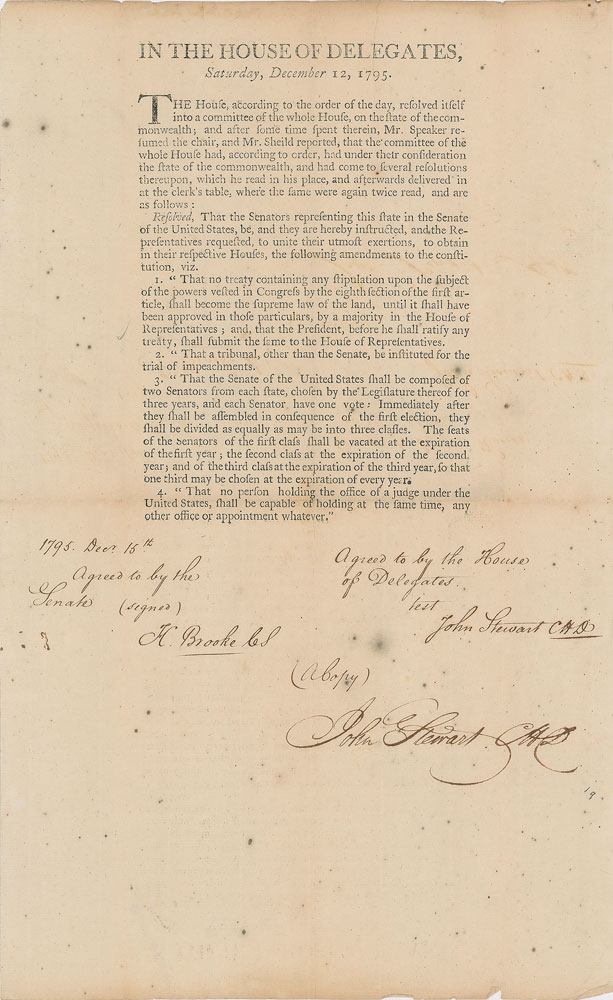 IN THE HOUSE OF DELEGATES,
Saturday, December 12, 1795.
THE Houſe, according to the order of the day, reſolved itſelf
into a committee of the whole Houſe, on the ſtate of the com-
monwealth; and after ſome time ſpent therein, Mr. Speaker re-
ſumed the chair, and Mr. Sheild reported, that the committee of the
whole Houſe had, according to order, had under their conſideration
the ſtate of the commonwealth, and had come to ſeveral reſolutions
thereupon, which he read in his place, and afterwards delivered in
at the clerk's table, where the ſame were again twice read, and are
as follows:
Reſolved, That the Senators repreſenting this ſtate in the Senate
of the United States, be, and they are hereby inſtructed, and the Re-
preſentatives requeſted, to unite their utmoſt exertions, to obtain
in their reſpective Houſes, the following amendments to the conſti-
tution, viz.
1. “ That no treaty containing any ſtipulation upon the ſubject
of the powers veſted in Congreſs by the eighth ſection of the firſt ar-
ticle, ſhall become the supreme law of the land, until it ſhall have
been approved in thoſe particulars, by a majority in the Houſe of
Repreſentatives; and, that the Preſident, before he ſhall ratify any
treaty, ſhall submit the ſame to the Houſe of Repreſentatives.
2. “ That a tribunal, other than the Senate, be inſtituted for the
trial of impeachments.
3. “ That the Senate of the United States ſhall be compoſed of
two Senators from each ſtate, choſen by the Legiſlature thereof for
three years, and each Senator have one vote: Immediately after
they ſhall be aſſembled in conſequence of the firſt election, they
ſhall be divided as equally as may be into three claſſes. The ſeats
of the Senators of the firſt claſs ſhall be vacated at the expiration
of the firſt year; the ſecond claſs at the expiration of the ſecond
year; and of the third claſs at the expiration of the third year, ſo that
one third may be choſen at the expiration of every year.
4. “ That no perſon holding the office of a judge under the
United States, ſhall be capable of holding at the ſame time, any
other office or appointment whatever.”
1795. Decr. 15th
Agreed to by the
Senate (signed)
H. Brooke CS
Agreed to by the House
of Delegates.
test
John Stewart CHD
(A Copy)
John Stewart CHD
19